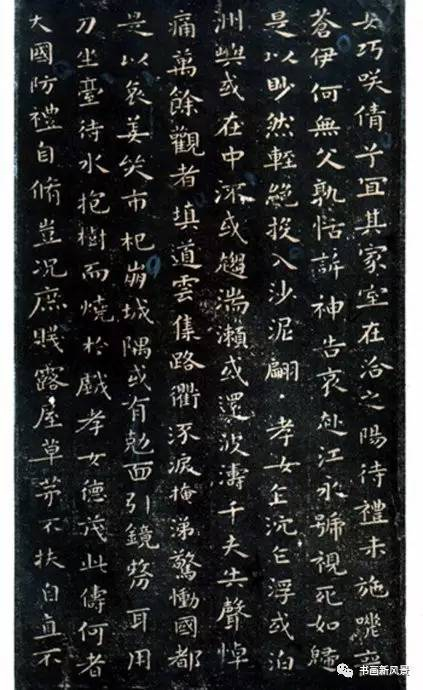 女巧咲倩兮宜其家室在洽之陽待禮未施嗟喪
蒼伊何無父孰怙訴神告哀赴江永號視死如歸
是以眇然輕絕投入沙泥翩·孝女乍沉乍浮或泊
洲嶼或在中流或趨湍瀨或還波濤千夫失聲悼
痛萬餘觀者填道雲集路衢流淚掩涕驚慟國都
是以哀姜哭市杞崩城隅或有勉面引鏡剺耳用
刀坐臺待水抱樹而燒於戲孝女德茂此儔何者
大國防禮自脩豈況庶賤露屋草茅不扶自直不
书画新风景